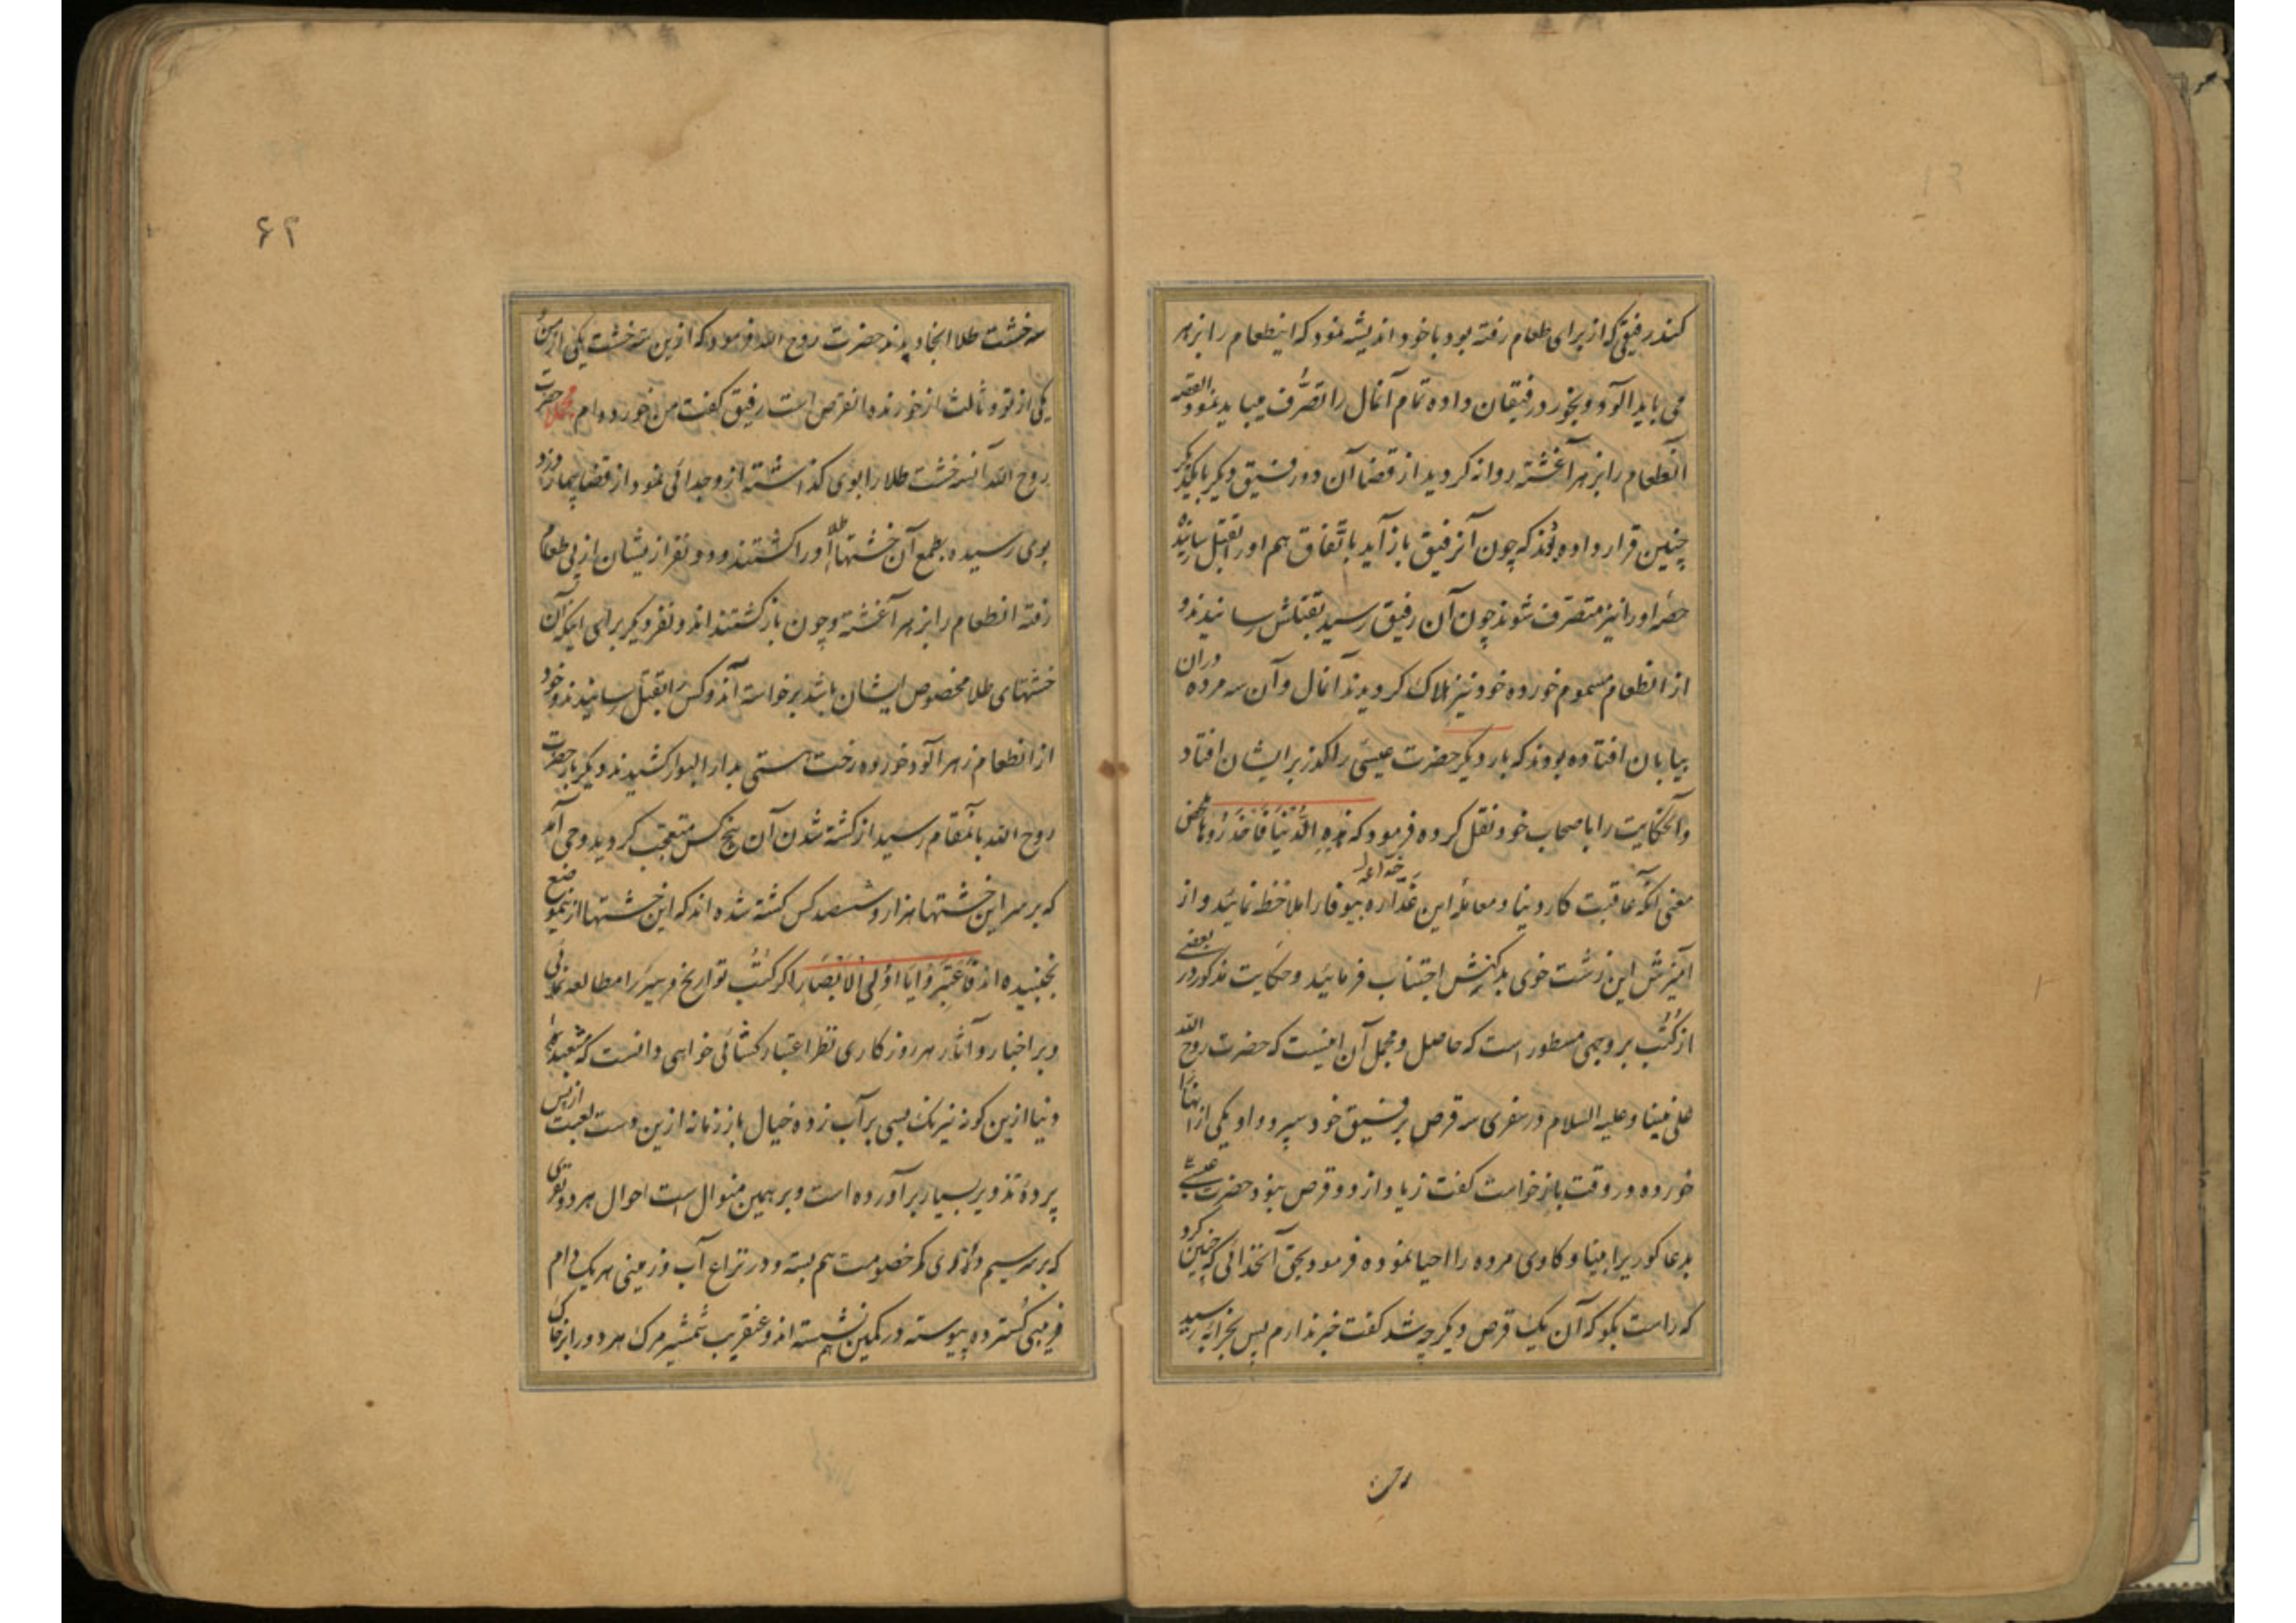 کنند رفیقی که از برای طعام رفته بود با خود اندیشه نمود که اینطعام را بزهر
می باید آلود و بخورد رفیقان داده تمام آنمال را تصرف میباید نمود القصه
آنطعام را بزهر آغشته روانه کردید از قضا آن دو رفیق دیگر با یکدیگر
چنین قرار داده بودند که چون آنرفیق باز آید باتفاق هم اورا بقتل رسانیده
حصه اورا نیز متصرف شوند چون آن رفیق رسید بقتلش رسانیدند و
از انطعام مسموم خورده خود نیز هلاک کردیدند آنمال و آن سه مرده دران
بیابان افتاده بودند که بار دیگر حضرت عیسی را گذر بر ایشان افتاد
و آنحکایت را با صحاب خود نقل کرده فرمود که هذه الدنیا فاحذروها محض
معنی آنکه عاقبت کار دنیا و معامله این غداره بیوفا را ملاحظه نمائید و از
آمیزش این زشت خوی بدکنش اجتناب فرمائید و حکایت مذکور در بعضی
از کتب بر وجهی مسطور است که حاصل و مجمل آن اینست که حضرت روح الله
علی نبینا و علیه السلام در سفری سه قرص برفیق خود سپرد و او یکی از آنها را
خورده در وقت باز خواست کفت زیاد از دو قرص نبود حضرت عیسی
بدعا کوریرا بینا و کاوی مرده را احیا نموده فرمود بحق آنخدائی که چنین کرد
که راست بکو که آن یک قرص دیگر چه شد کفت خبر ندارم پس بخرابه رسید
سه خشت
۶۲
سه خشت طلا انجا دیدند حضرت روح الله فرمود که ازین سه خشت یکی از من
یکی از تو و ثالث از خورنده انقرص است رفیق کفت من خورده ام مجملا حضرت
روح الله آنسه خشت طلا را بوی کذاشته از و جدائی نمود از قضا چهار دزد
بوی رسیده بطمع آن خشتها طلا اورا کشتند و دو نفر از یشان از پی طعام
رفته انطعام را بزهر آغشته و چون باز کشتند اندو نفر دیگر برای اینکه آن
خشتهای طلا مخصوص ایشان باشد برخواسته آندو کس را بقتل رسانیدند و خود
از انطعام زهر آلود خورده رخت هستی بدار البوار کشیدند دیگر بار حضرت
روح الله بانمقام رسید از کشته شدن آن پنج کس متعجب کردید وحی آمد
که بر سر این خشتها هزار و ششصد کس کشته شده اند که این خشتها از ینموضع
نجنبیده اند فاعتبروا یا اولی الابصار اکر کتب تواریخ و سیر را مطالعه نمائی
و بر اخبار و آثار هر روزکاری نظر اعتبار کشائی خواهی دانست که مشعبد
دنیا ازین کونه نیرنک بسی بر آب زده خیال باز زمانه ازین دست لعبت از پس
پرده تذویر بسیار بر آورده است و بر همین منوال است احوال هر دو نفری
که بر سر سیم و زری کمر خصومت هم بسته و در نزاع آب و زمینی هر یک دام
فریبی کسترده پیوسته در کمین هم نشسته اند و عنقریب شمشیر مرک هر دو را بر خاک